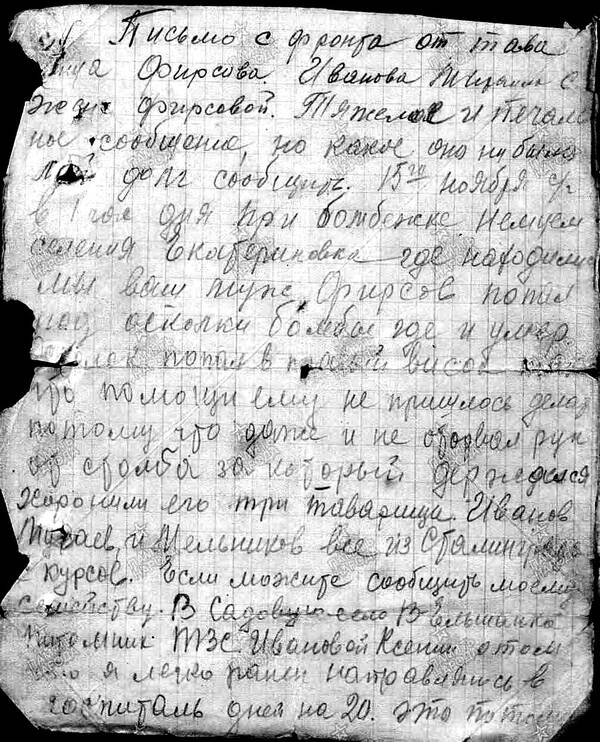 Письмо с фронта от тава
Фирсова. Иванова
жене Фирсовой. Тяжелое и печаль
ное сообщение, но какое оно ни было
долг сообщить. 15го ноября с/г
в 1 час дня при бомбежке немцем
селения Екатериновка где находились
мы ваш муж Фирсов попал
под осколки бомбы где и умер.
попал в правый висок
что помощи ему не пришлось делат
потому что даже и не оторвал рук
от столба за который держался
Хоронили его три таварища Иванов
и Мельников все из Сталинграда
с курсов. Если можите сообщить моему
семейству. В Садовую село В Ельшанка
питомник Ивановой Ксении о том
что я легко ранен направляюсь в
госпиталь дней на 20. это